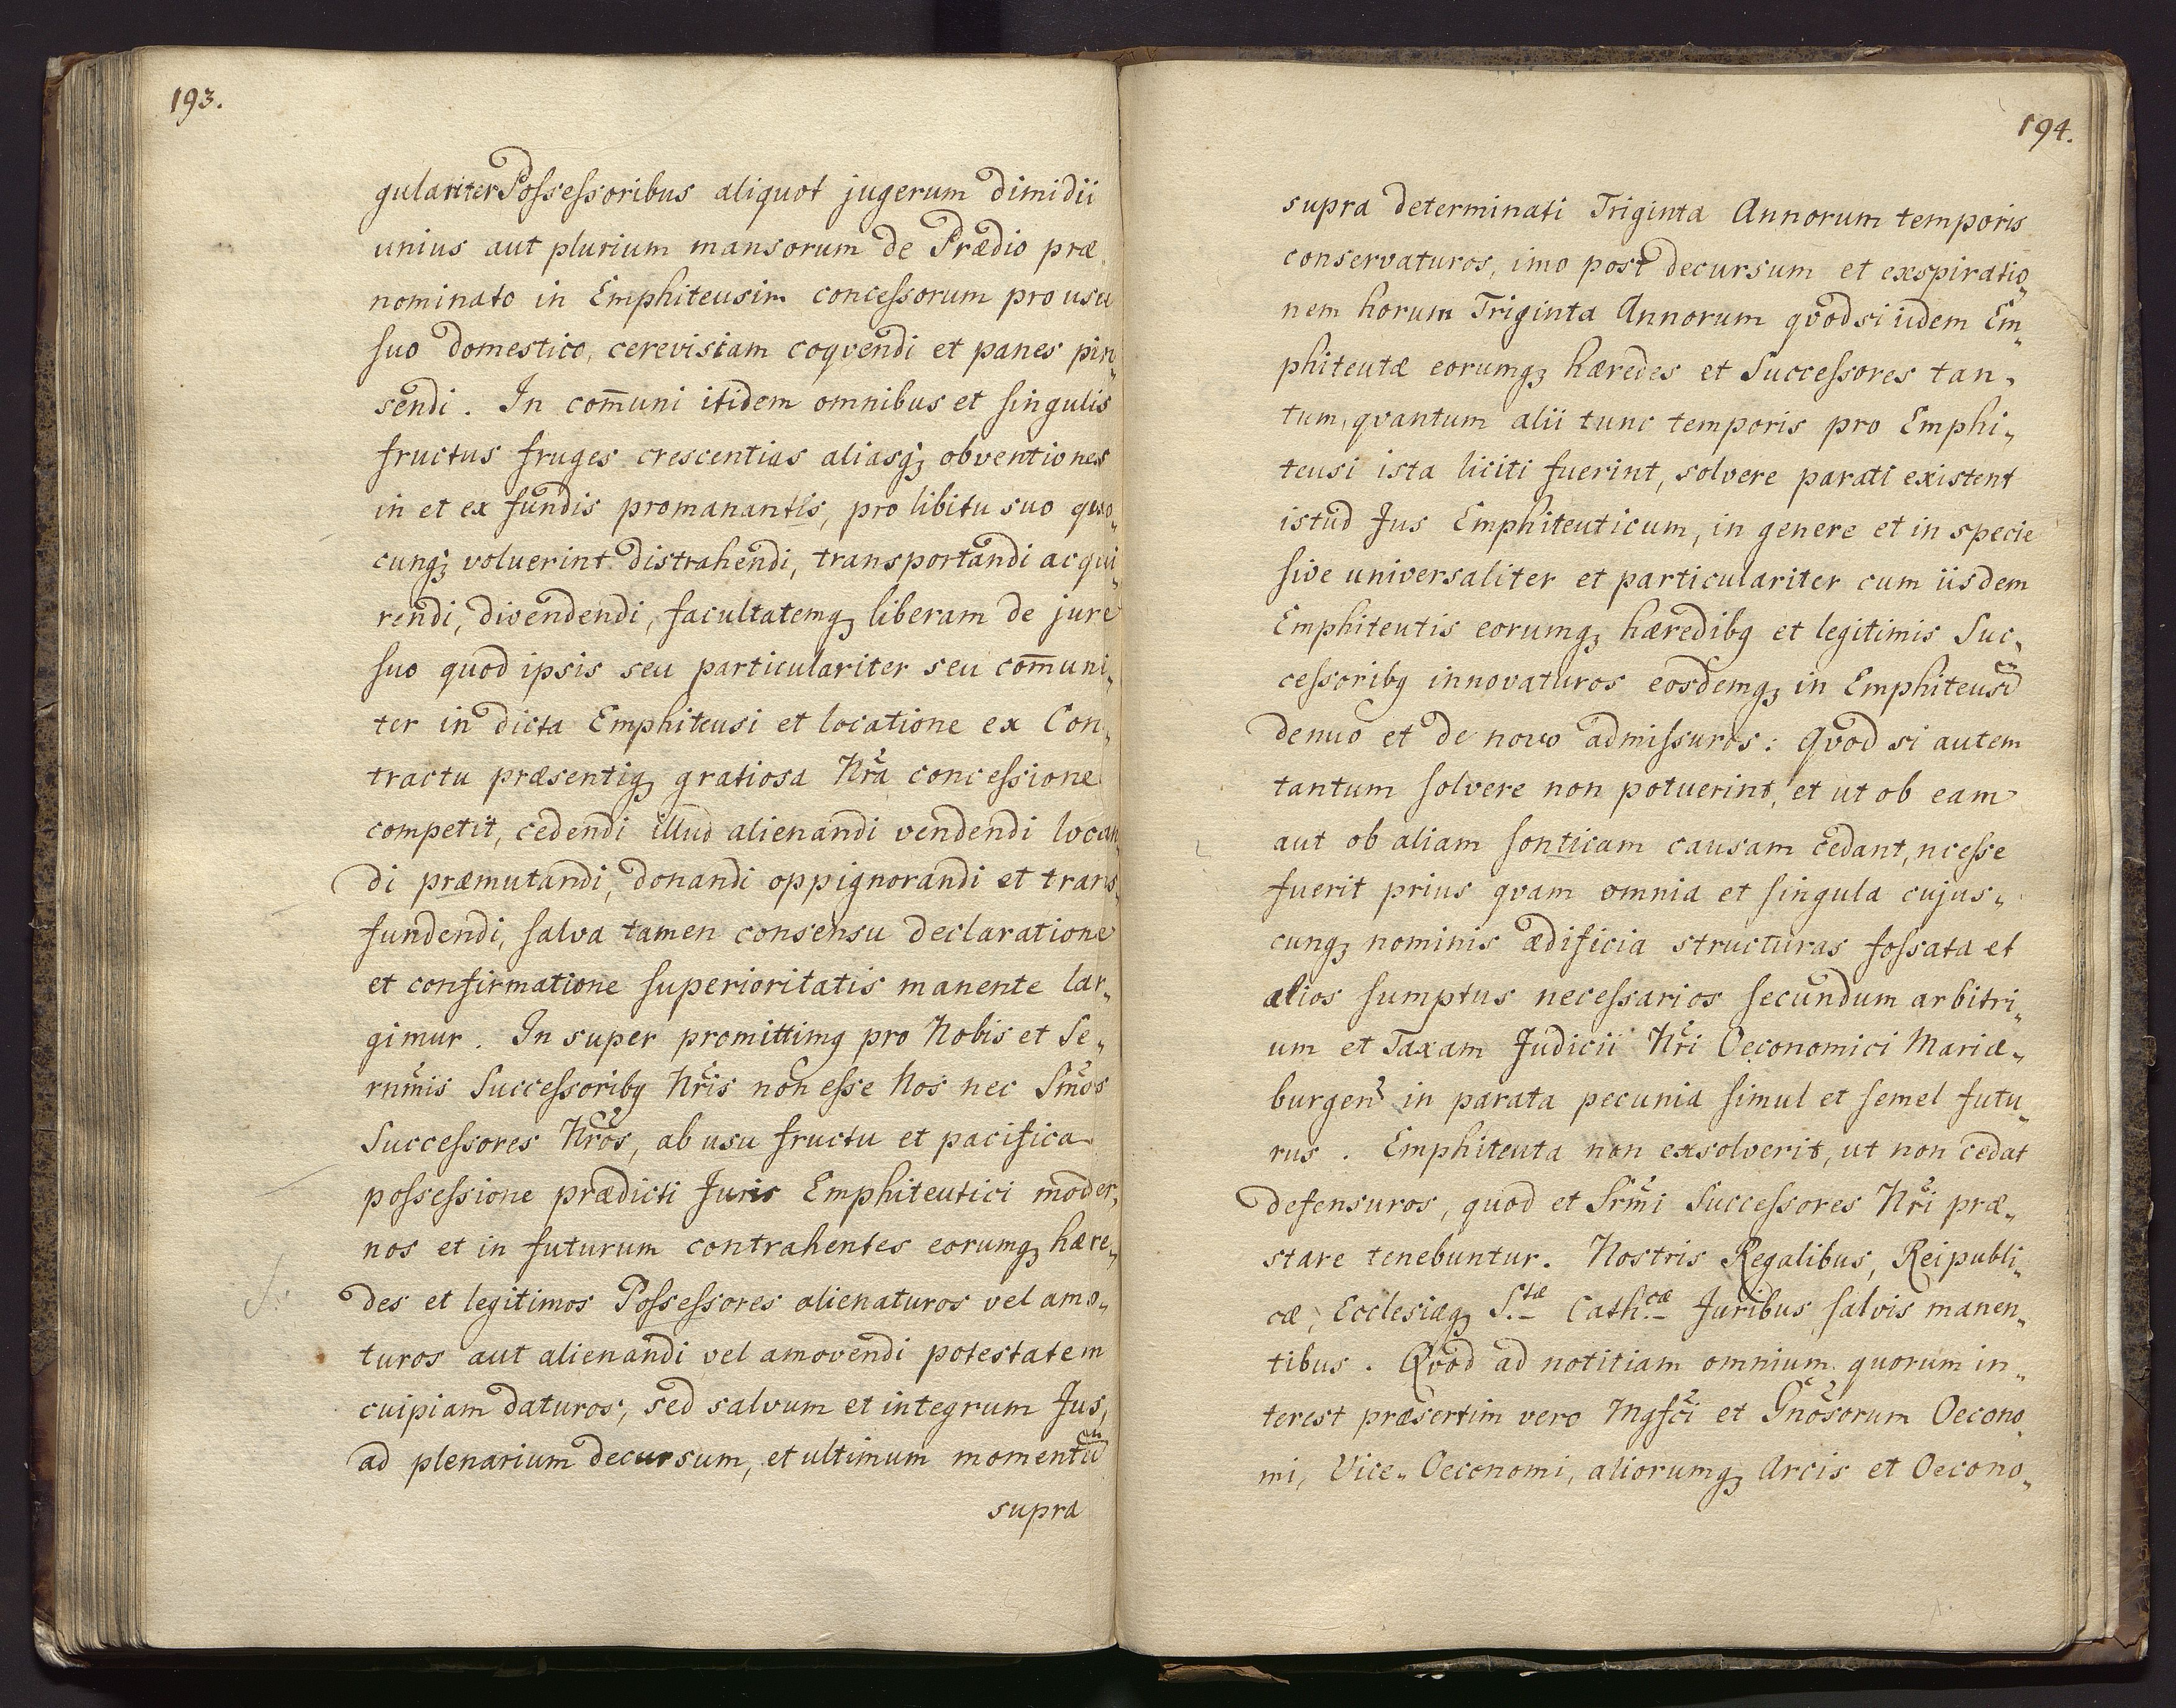 193.
gulariter Possessoribus aliquot jugerum dimidii
unius aut plurium mansorum de Prædio præ„
nominato in Emphiteusim concessorum pro usu
suo domestico, cerevisiam coqvendi et panes pin„
sendi. In com̄uni itidem omnibus et singulis
fructus fruges crescentias aliasqꝫ obventiones
in et ex fundis promanantis, pro libitu suo quo„
cunqꝫ voluerint distrahendi, transportandi acqui„
rendi, divendendi, facultatemqꝫ liberam de jure
suo quod ipsis seu particulariter seu com̄uni„
ter in dicta Emphiteusi et locatione ex Con„
tractu præsentiqꝫ gratiosa Nr̃a concessione
competit, cedendi illud alienandi vendendi locan„
di præmutandi, donandi oppignorandi et trans„
fundendi, salva tamen consensu declaratione
et confirmatione superioritatis manente lar„
gimur. In super promittimꝯ pro Nobis et Se„
rnm̃is Successoribꝯ Nr̃is non esse Nos nec Sm̃os
Successores Nr̃os, ab usu fructu et pacifica
possessione prædicti Juris Emphiteutici moder„
nos et in futurum contrahentes eorumqꝫ hære„
des et legitimos Possessores alienaturos vel amo„
turos aut alienandi vel amovendi potestatem
cuipiam daturos, sed salvum et integrum Jus,
ad plenarium decursum, et ultimum momentũ
supra
194.
supra determinati Triginta Annorum temporis
conservaturos, imo post decursum et exspiratio„
nem horum Triginta Annorum qvodsi iidem Em„
phiteutæ eorumqꝫ hæredes et Successores tan„
tum, qvantum alii tunc temporis pro Emphi„
teusi ista liciti fuerint, solvere parati existent
istud Jus Emphiteuticum, in genere et in specie
sive universaliter et particulariter cum iisdem
Emphiteutis eorumqꝫ hæredibꝯ et legitimis Suc„
cessoribꝯ innovaturos eosdemqꝫ in Emphiteusĩ
denuo et de novo admissuros: Qvod si autem
tantum solvere non potuerint, et ut ob eam
aut ob aliam sonticam causam cedant, ncesse
fuerit prius qvam omnia et singula cujus„
cunqꝫ nominis ædificia structuras fossata et
alios sumptus necessarios secundum arbitri„
um et Taxam Judicii Nr̃i Oeconomici Mariæ„
burgen̉ in parata pecunia simul et semel futu„
rus. Emphiteuta non exsolverit, ut non cedat
defensuros, quod et Srm̃i Successores Nr̃i præ„
stare tenebuntur. Nostris Regalibus, Reipubli„
cæ, Ecclesiæqꝫ S.tæ Cath.cæ Juribus salvis manen„
tibus. Qvod ad notitiam omnium quorum in„
terest præsertim vero Mgfc̃i et Gnõsorum Oecono„
mi, Vice„ Oeconomi, aliorumqꝫ Arcis et Oecono„